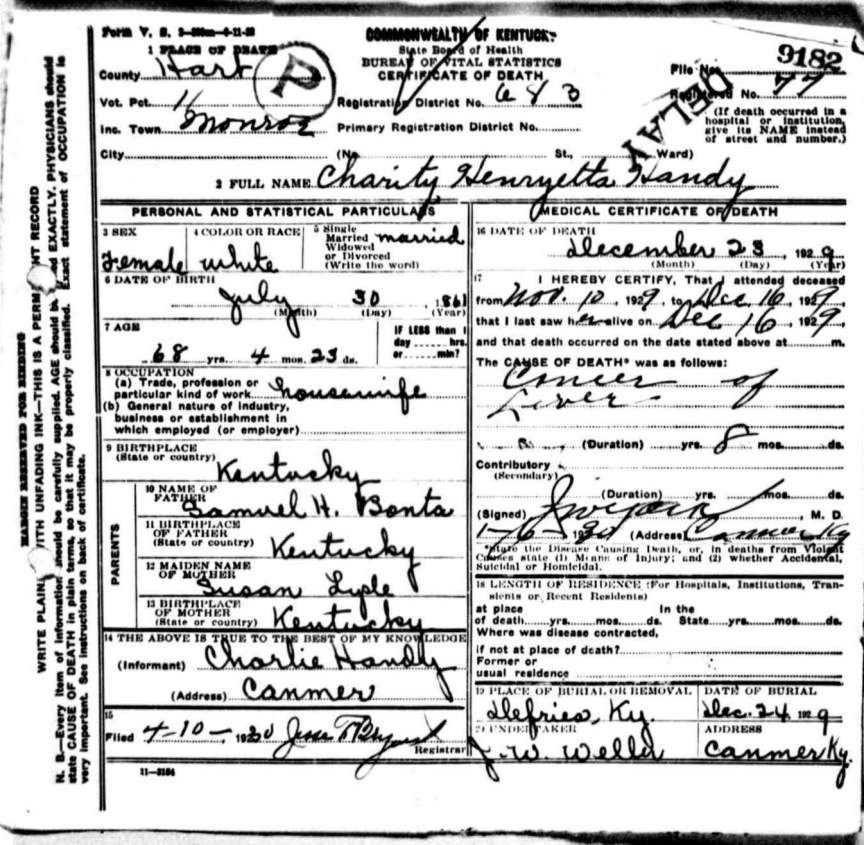 Form V. S.
COMMONWEALTH OF KENTUCKY
State Board of Health
BUREAU OF VITAL STATISTICS
CERTIFICATE OF DEATH
9182
File No.
1 PLACE OF DEATH
County Hart
2
Vot. Pct. 11
Registration District No. 683
Registered No. 77
DELAY
(If death occurred in a hospital or institution, give its NAME instead of street and number.)
Inc. Town Monroe
Primary Registration District No.
City (No. St., Ward)
2 FULL NAME Charity Henryetta Handy
PERSONAL AND STATISTICAL PARTICULARS
3 SEX Female
4 COLOR OR RACE white
5 Single Married Widowed or Divorced (Write the word) married
6 DATE OF BIRTH
July 30 1861
(Month) (Day) (Year)
7 AGE
68 yrs. 4 mos. 23 ds.
IF LESS than 1 day hrs. or min?
8 OCCUPATION
(a) Trade, profession or particular kind of work housewife
(b) General nature of industry, business or establishment in which employed (or employer)
9 BIRTHPLACE
(State or country) Kentucky
PARENTS
10 NAME OF FATHER Samuel H. Bonta
11 BIRTHPLACE OF FATHER
(State or country) Kentucky
12 MAIDEN NAME OF MOTHER Susan Lyle
13 BIRTHPLACE OF MOTHER
(State or country) Kentucky
14 THE ABOVE IS TRUE TO THE BEST OF MY KNOWLEDGE
(Informant) Charlie Handy
(Address) Canmer
15
Filed 4-10-, 1930
Registrar
11-3184
MEDICAL CERTIFICATE OF DEATH
16 DATE OF DEATH
December 23, 1929
(Month) (Day) (Year)
17 I HEREBY CERTIFY, That I attended deceased
from Nov. 10, 1929, to Dec 16, 1929
that I last saw her alive on Dec 16, 1929
and that death occurred on the date stated above at m.
The CAUSE OF DEATH* was as follows:
Cancer of
Liver
(Duration) yrs. 8 mos. ds.
Contributory
(Secondary)
(Duration) yrs. mos. ds.
(Signed) , M. D.
1-6 1930 (Address) Canmer Ky
*State the Disease Causing Death, or, in deaths from Violent
Causes state (1) Means of Injury; and (2) whether Accidental,
Suicidal or Homicidal.
18 LENGTH OF RESIDENCE (For Hospitals, Institutions, Transients or Recent Residents)
at place of death yrs. mos. ds. In the State yrs. mos. ds.
Where was disease contracted,
if not at place of death?
Former or
usual residence
19 PLACE OF BURIAL OR REMOVAL
Defries, Ky.
DATE OF BURIAL
Dec. 24, 1929
UNDERTAKER
J. W. Weller
ADDRESS
Canmer Ky.
MARGIN RESERVED FOR BINDING
WRITE PLAINLY WITH UNFADING INK—THIS IS A PERMANENT RECORD
N. B.—Every item of information should be carefully supplied. AGE should be EXACTLY. PHYSICIANS should
state CAUSE OF DEATH in plain terms, so that it may be properly classified. Exact statement of OCCUPATION is
very important. See instructions on back of certificate.